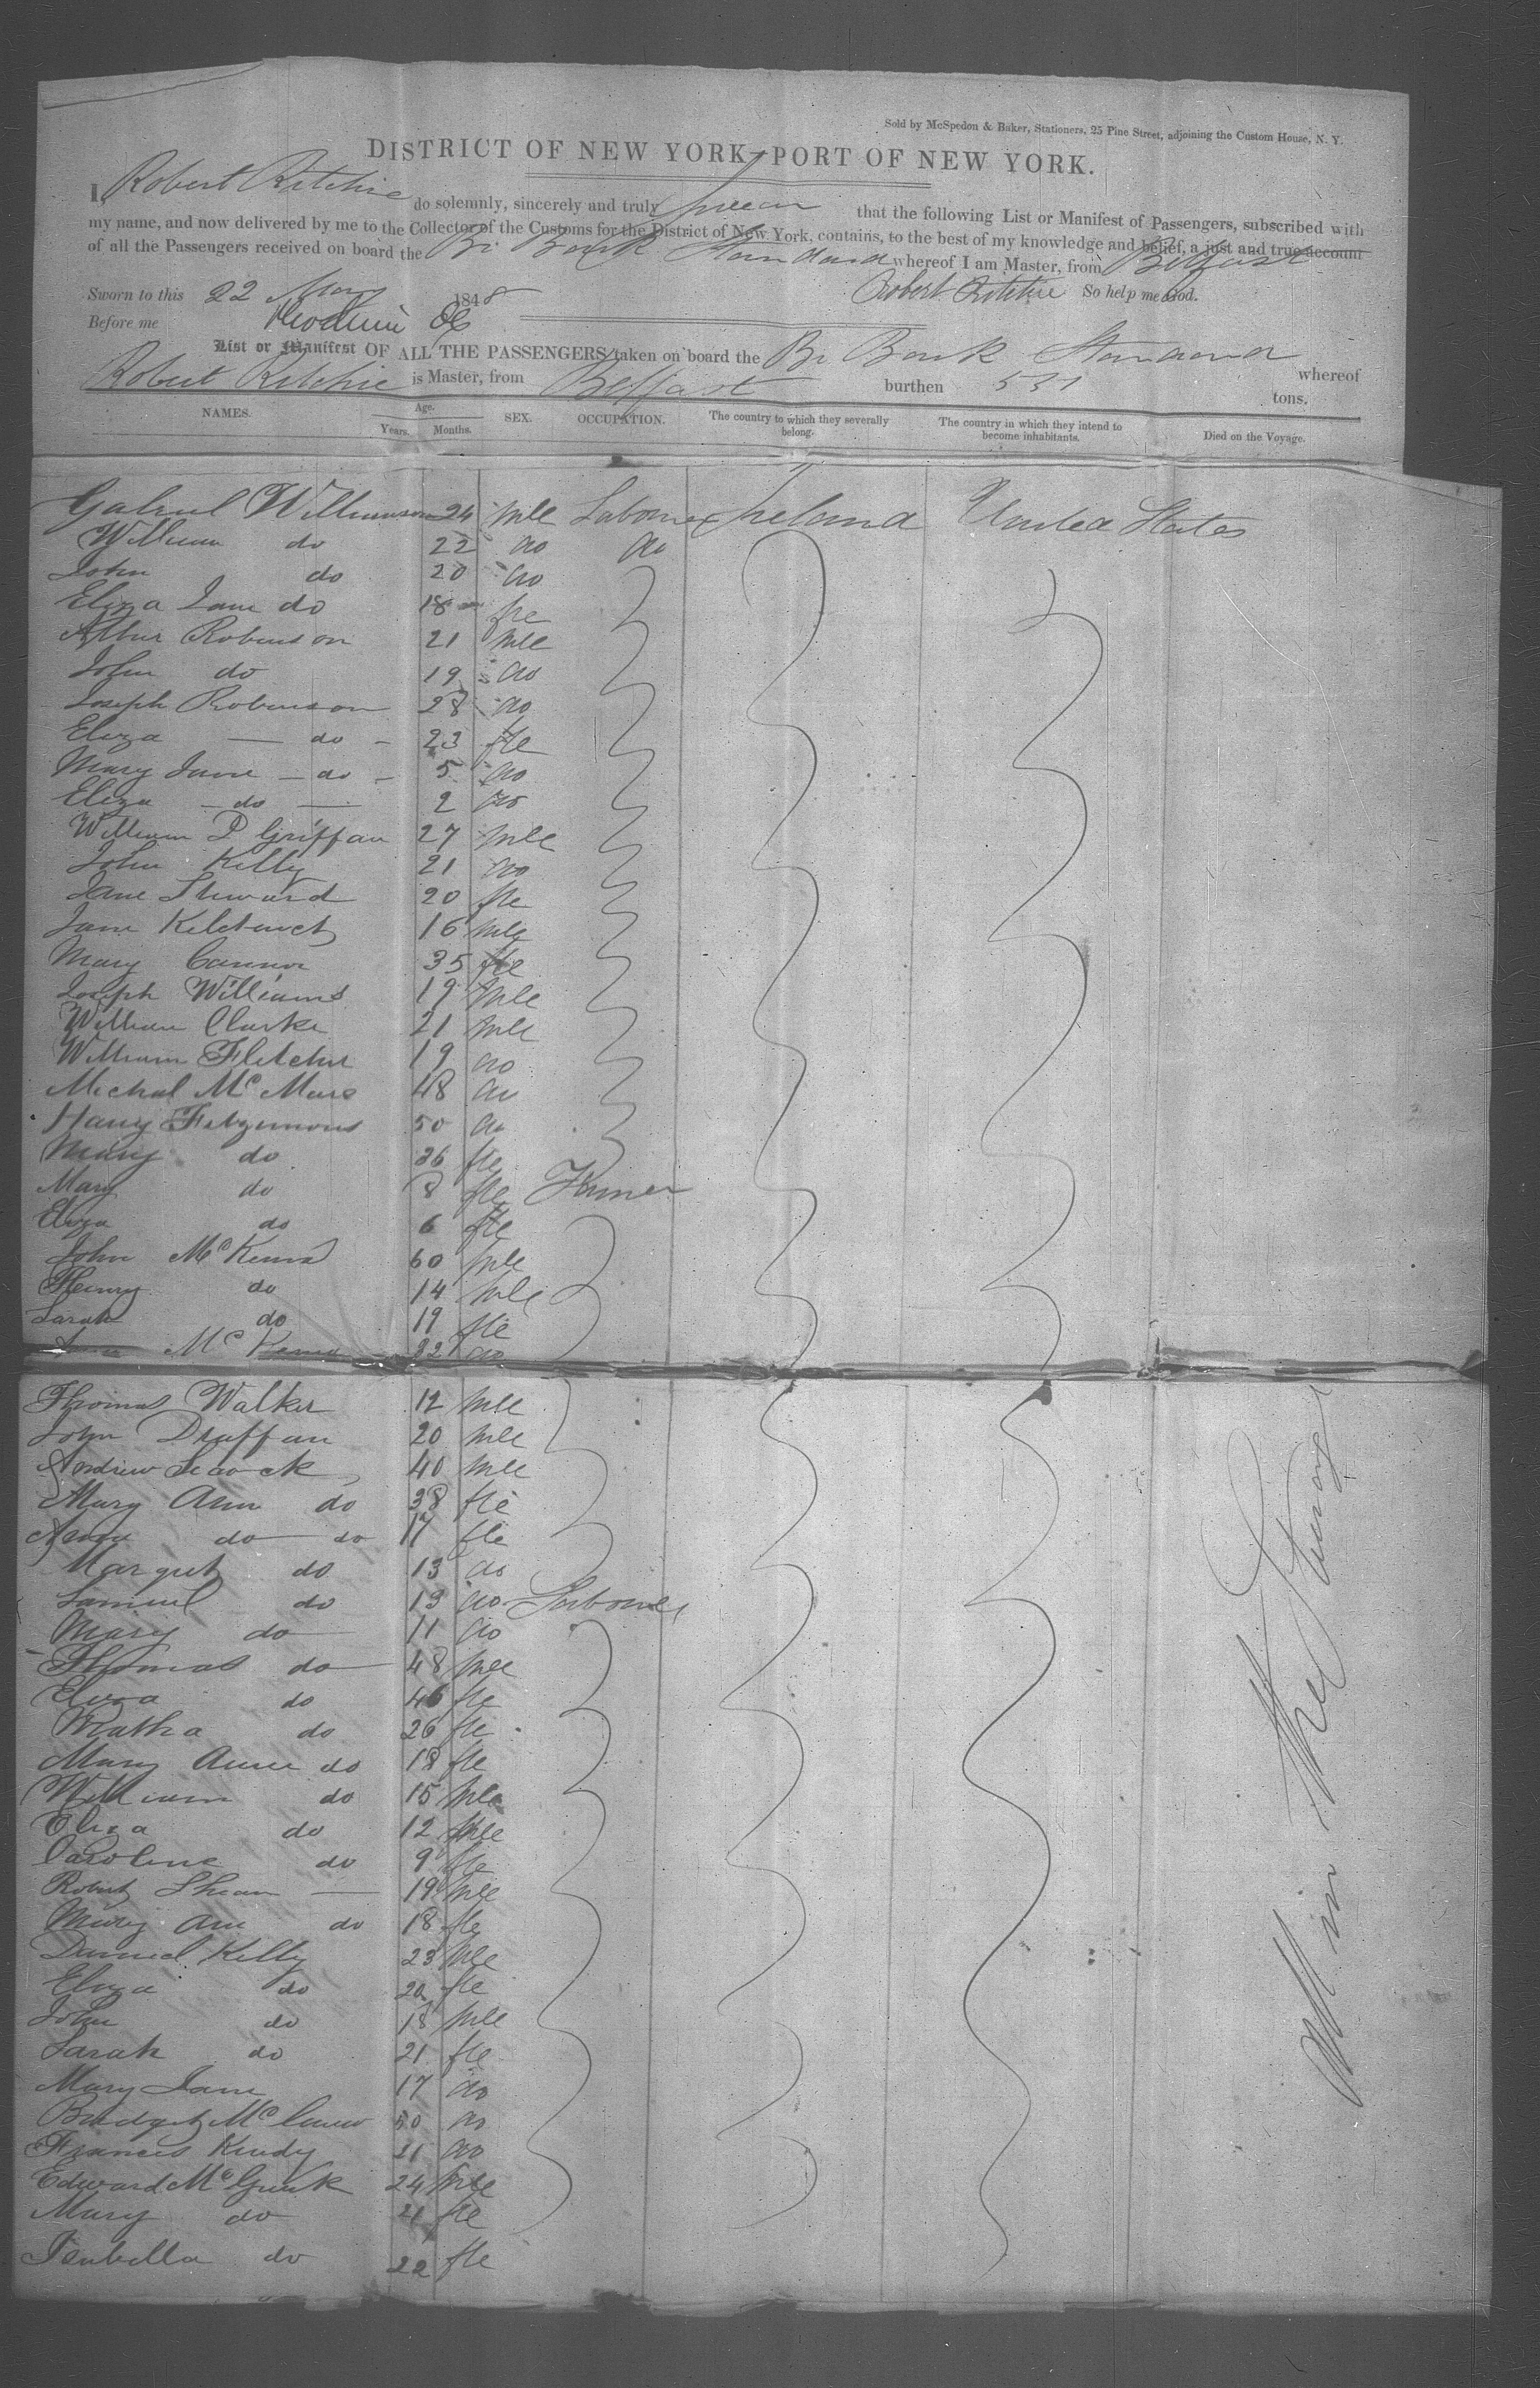 Sold by McSpedon & Baker, Stationers, 25 Pine Street, adjoining the Custom House, N. Y.
DISTRICT OF NEW YORK—PORT OF NEW YORK.
I, Robert Ritchie do solemnly, sincerely and truly swear that the following List or Manifest of Passengers, subscribed with
my name, and now delivered by me to the Collector of the Customs for the District of New York, contains, to the best of my knowledge and belief, a just and true account
of all the Passengers received on board the Br Bark Standard whereof I am Master, from Belfast
Sworn to this 22 May 1848 Robert Ritchie So help me God.
Before me
List or Manifest OF ALL THE PASSENGERS taken on board the Br Bark Standard whereof
Robert Ritchie is Master, from Belfast burthen 531 tons.
NAMES. Age. Years. Months. SEX. OCCUPATION. The country to which they severally belong. The country in which they intend to become inhabitants. Died on the Voyage.
Gabriel Williamson 24 mle Labourer Ireland United States
William do 22 do do
John do 20 do
Eliza Jane do 18 fle
Arthur Robinson 21 mle
John do 19 do
Joseph Robinson 28 do
Eliza — do - 23 fle
Mary Jane - do - 5 do
Eliza - do — 2 do
William P Griffan 27 mle
John Kelly 21 do
Jane Steward 20 fle
Jane 16 mle
Mary Connor 35 fle
Joseph Williams 19 mle
William Clarke 21 mle
William Fletcher 19 do
Michal Mc 48 do
Harry Fitzsimons 50 do
Mary do 36 fle
Mary do 8 fle Farmer
Eliza do 6 fle
John McKenna 60 mle
Henry do 14 mle
Sarah do 19 fle
McKenna 22 do
Thomas Walker 12 mle
John Draffan 20 mle
Andrew 40 mle
Mary Ann do 38 fle
do do 17 fle
Margret do 13 do
Samuel do 13 do Labourer
Mary do 11 do
Thomas do 48 mle
Eliza do 46 fle
Martha do 26 fle
Mary Anne do 18 fle
William do 15 mle
Eliza do 12 fle
Caroline do 9 fle
Robert Shean — 19 mle
Mary Ann do 18 fle
Daniel Kelly 23 mle
Eliza do 20 fle
John do 18 mle
Sarah do 21 fle
Mary Jane 17 do
Bridget Mc 50 do
Francis 21 do
Edward McGurk 24 mle
Mary do 21 fle
Isabella do 22 fle
All in the Steerage